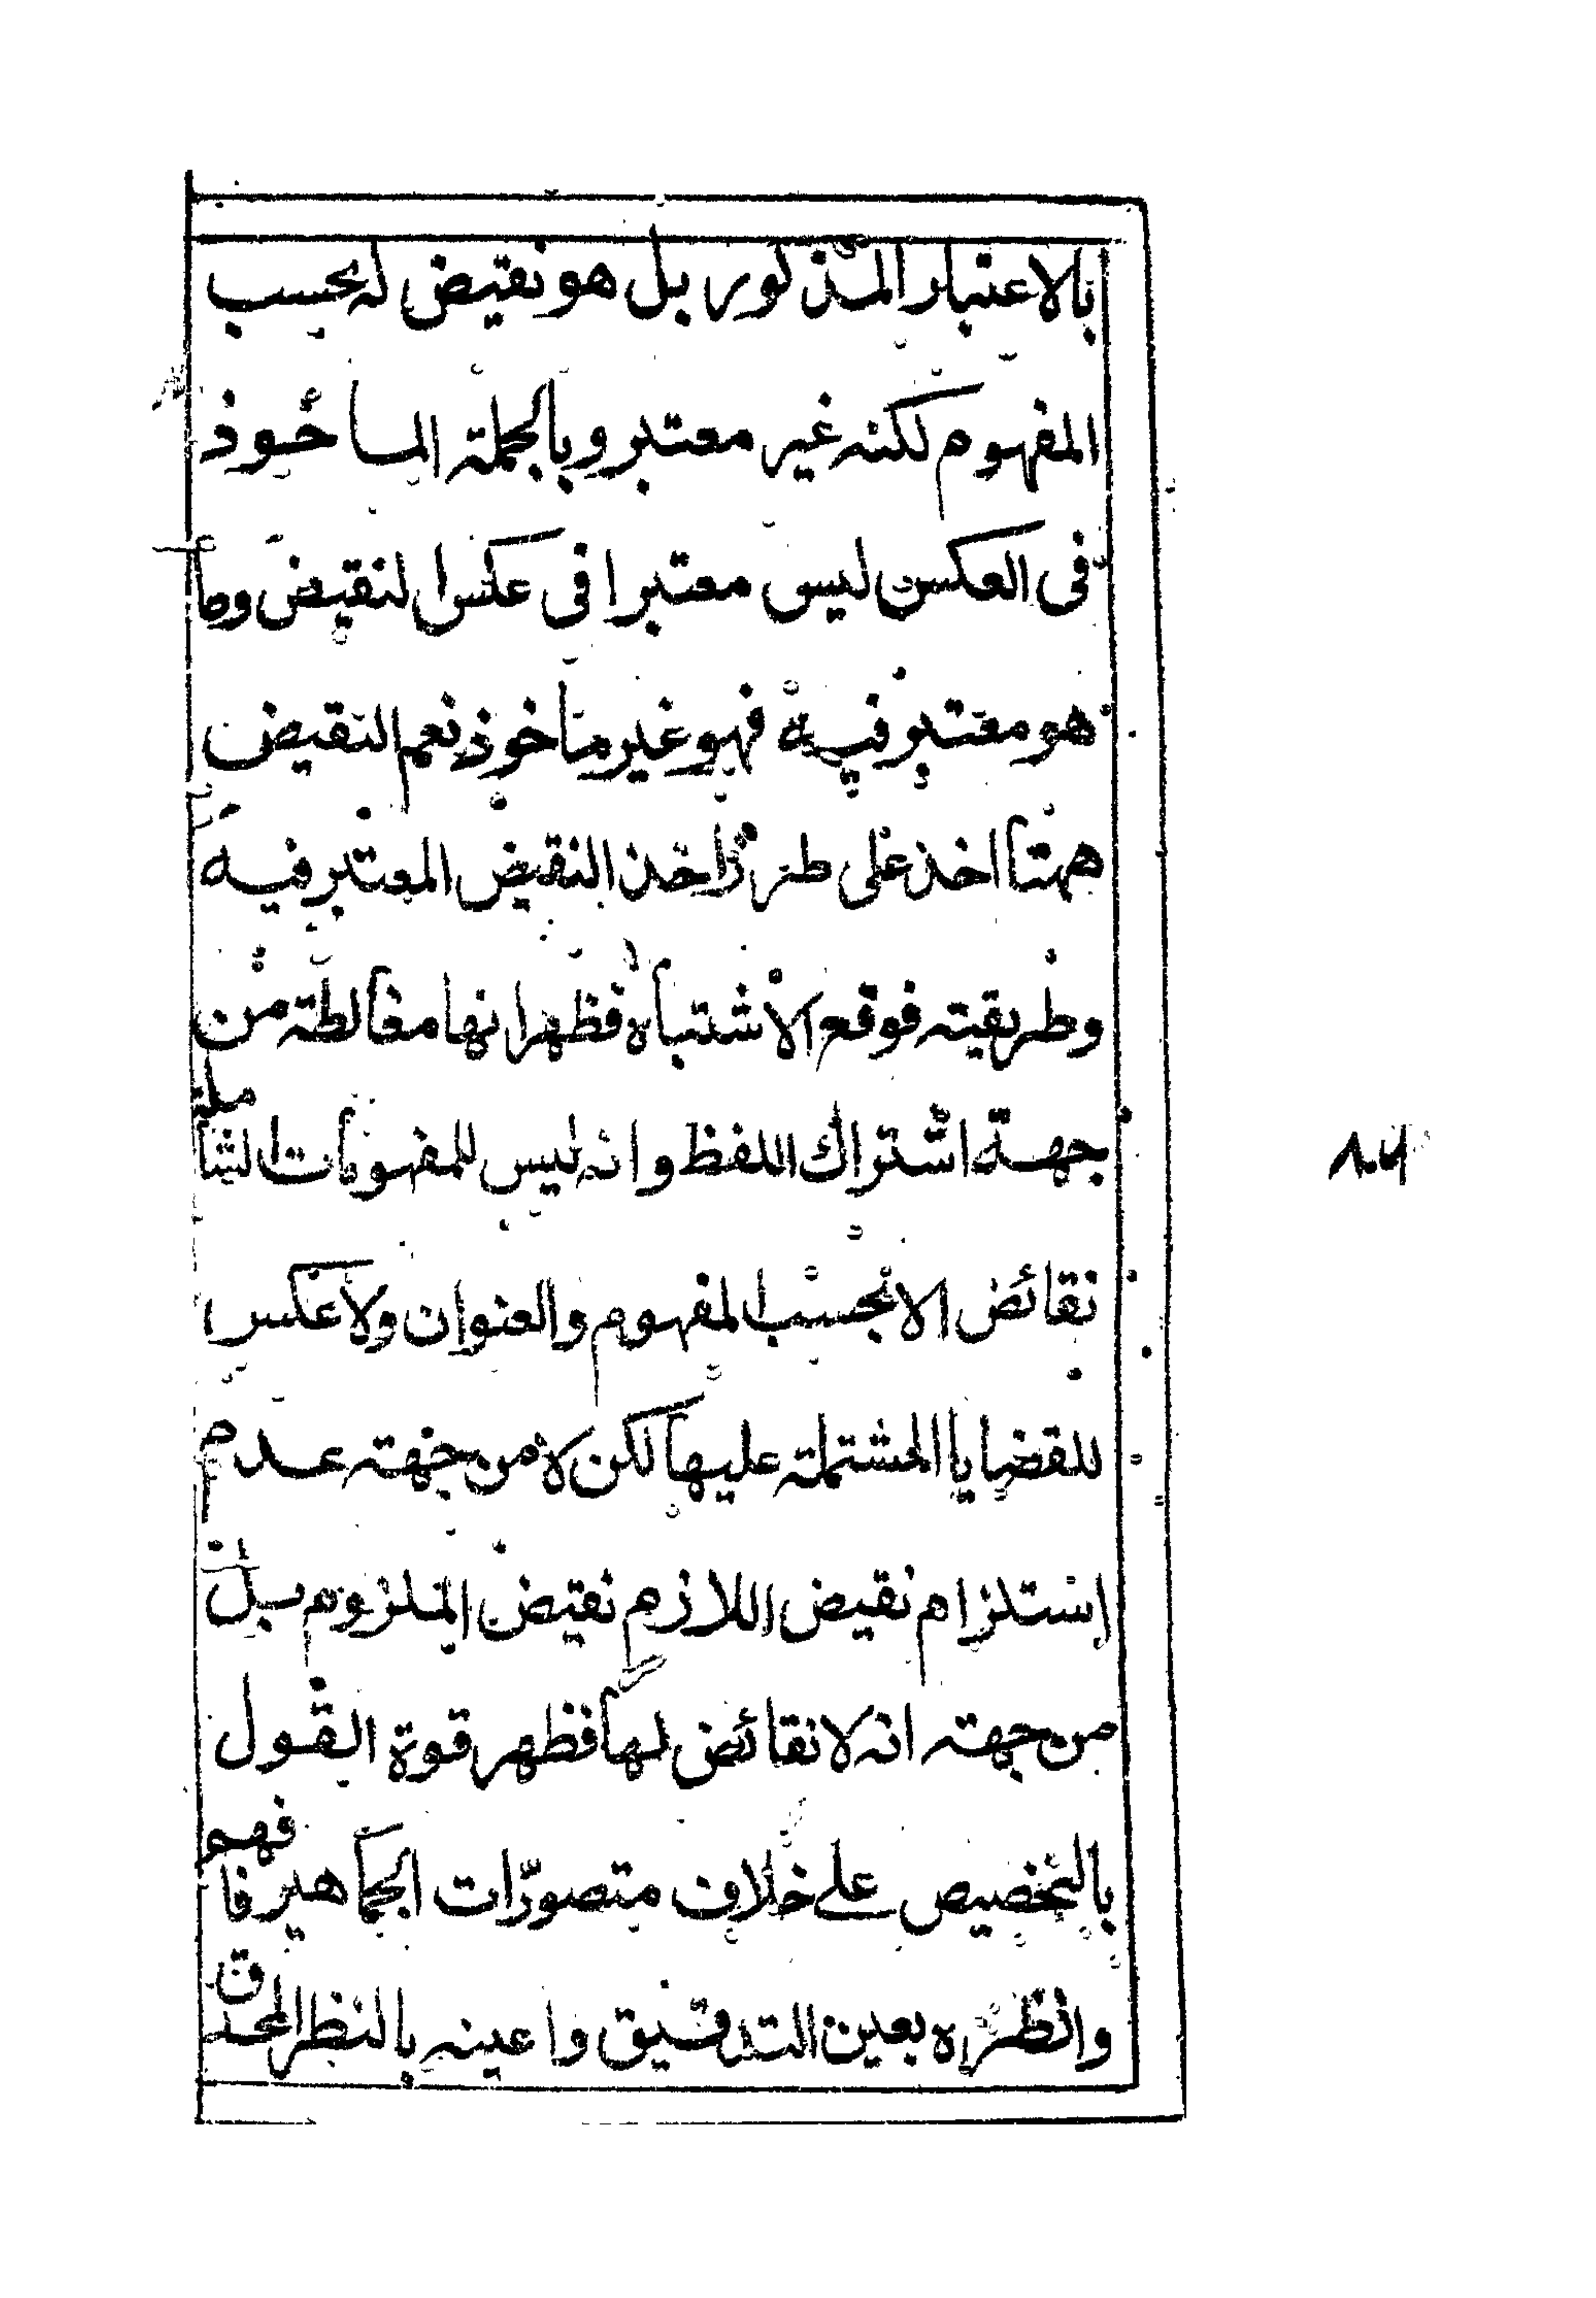 بالاعتبار المذكور بل هو نقيض له بحسب
المفهوم لكنه غير معتبر وبالجملة الماخوذ
فى العكس ليس معتبرا فى عكس النقيض وما
هو معتبر فيه فهو غير ماخوذ نعم النقيض
ههنا اخذ على طرز اخذ النقيض المعتبر فيه
وطريقته فوقع الاشتباه فظهر انها مغالطة من
جهة اشتراك اللفظ وانه ليس للمفهومات الشاملة
نقائض الا بحسب المفهوم والعنوان ولا عكس
للقضايا المشتملة عليها لكن لا من جهة عدم
استلزام نقيض اللازم نقيض الملزوم بل
من جهة انه لا نقائض لها فظهر قوة القول
بالتخصيص على خلاف متصورات الجماهير فافهم
وانظره بعين التدقيق واعينه بالنظر المحدق